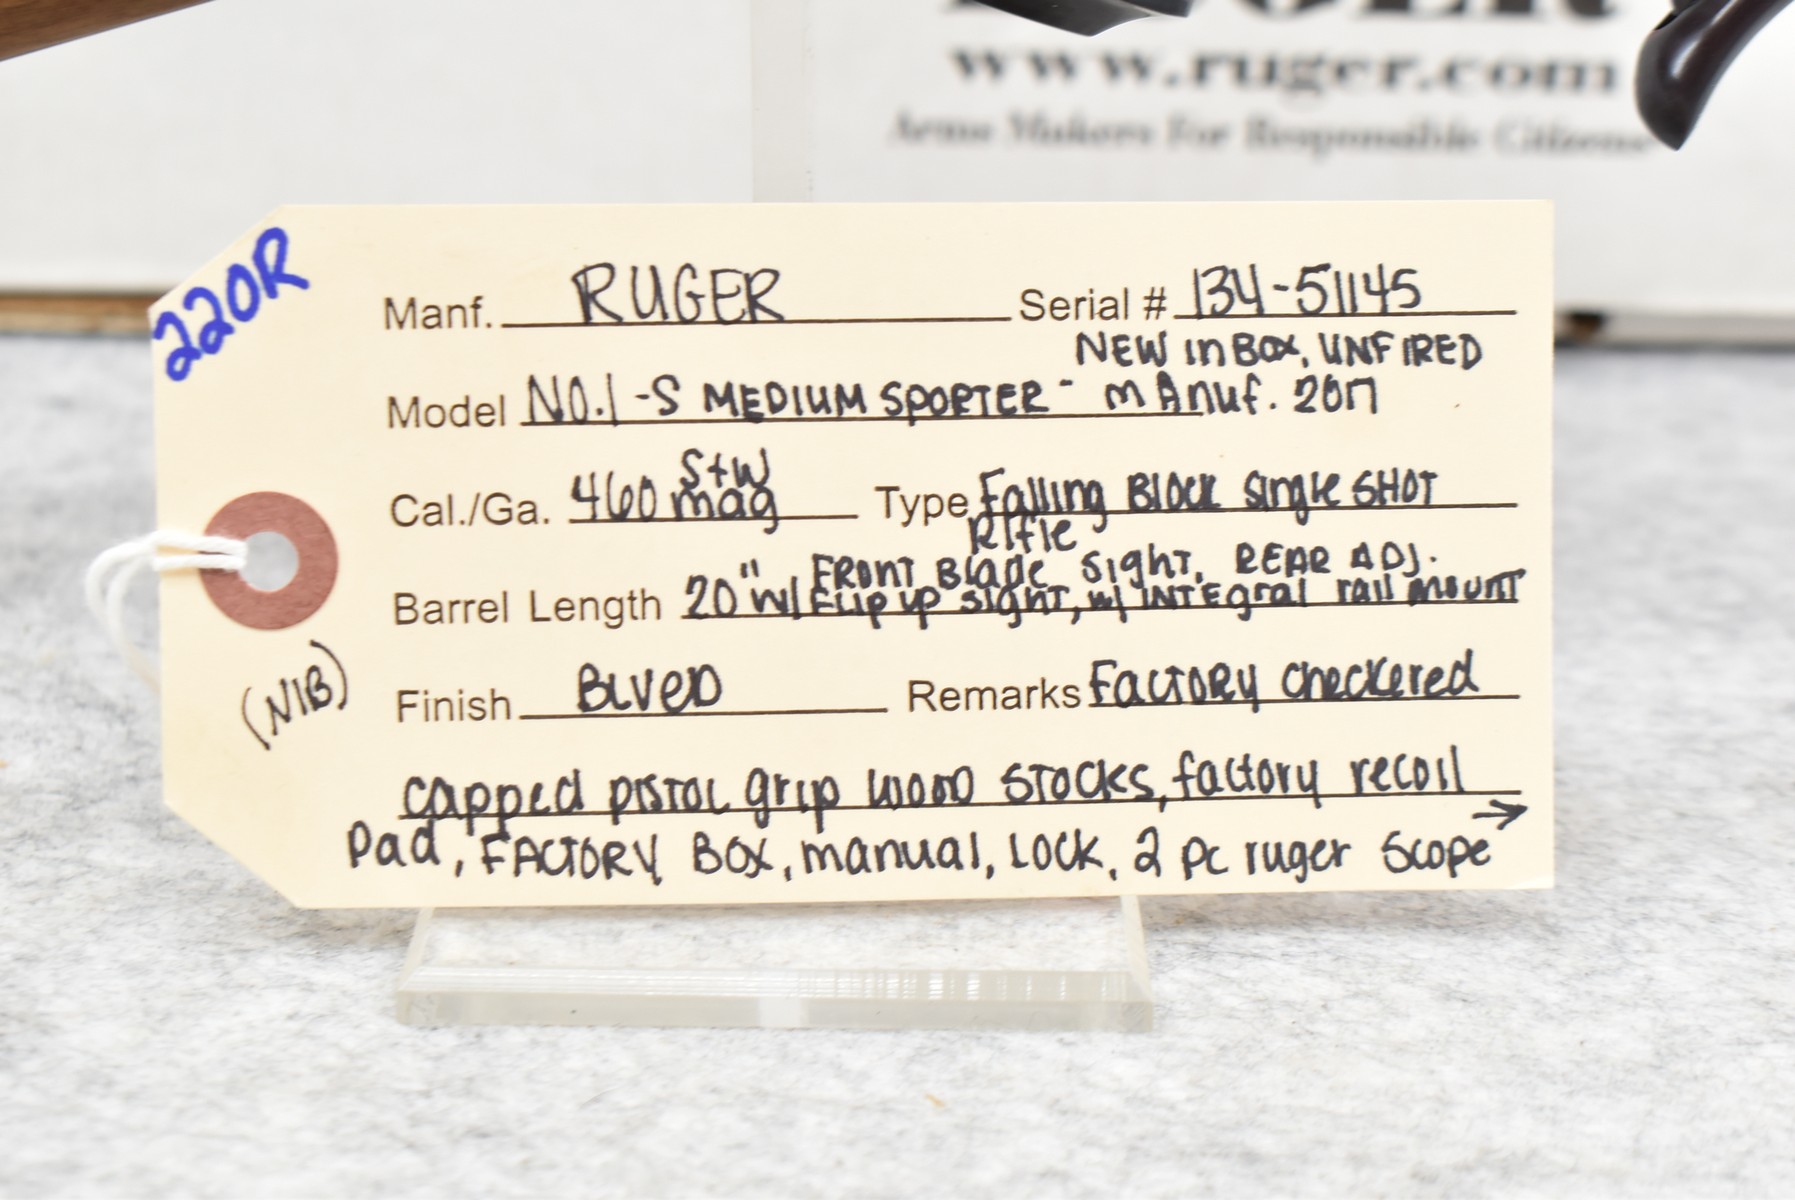 www.ruger.com
Arms Makers For Responsible Citizens
220R
Manf. RUGER Serial # 134-51145
NEW in BOX, UNFIRED
Model NO.1-S MEDIUM SPORTER - mAnuf. 2017
Cal./Ga. 460 S+W mag Type Falling Block Single SHOT
Rifle
FRONT Blade Sight, REAR ADJ.
Barrel Length 20" w/ FLIP UP sight, w/ INTEgral rail mount
(NIB)
Finish BLUED Remarks Factory checkered
capped pistol grip wood stocks, factory recoil
Pad, FACTORY BOX, manual, Lock, 2 pc ruger Scope →